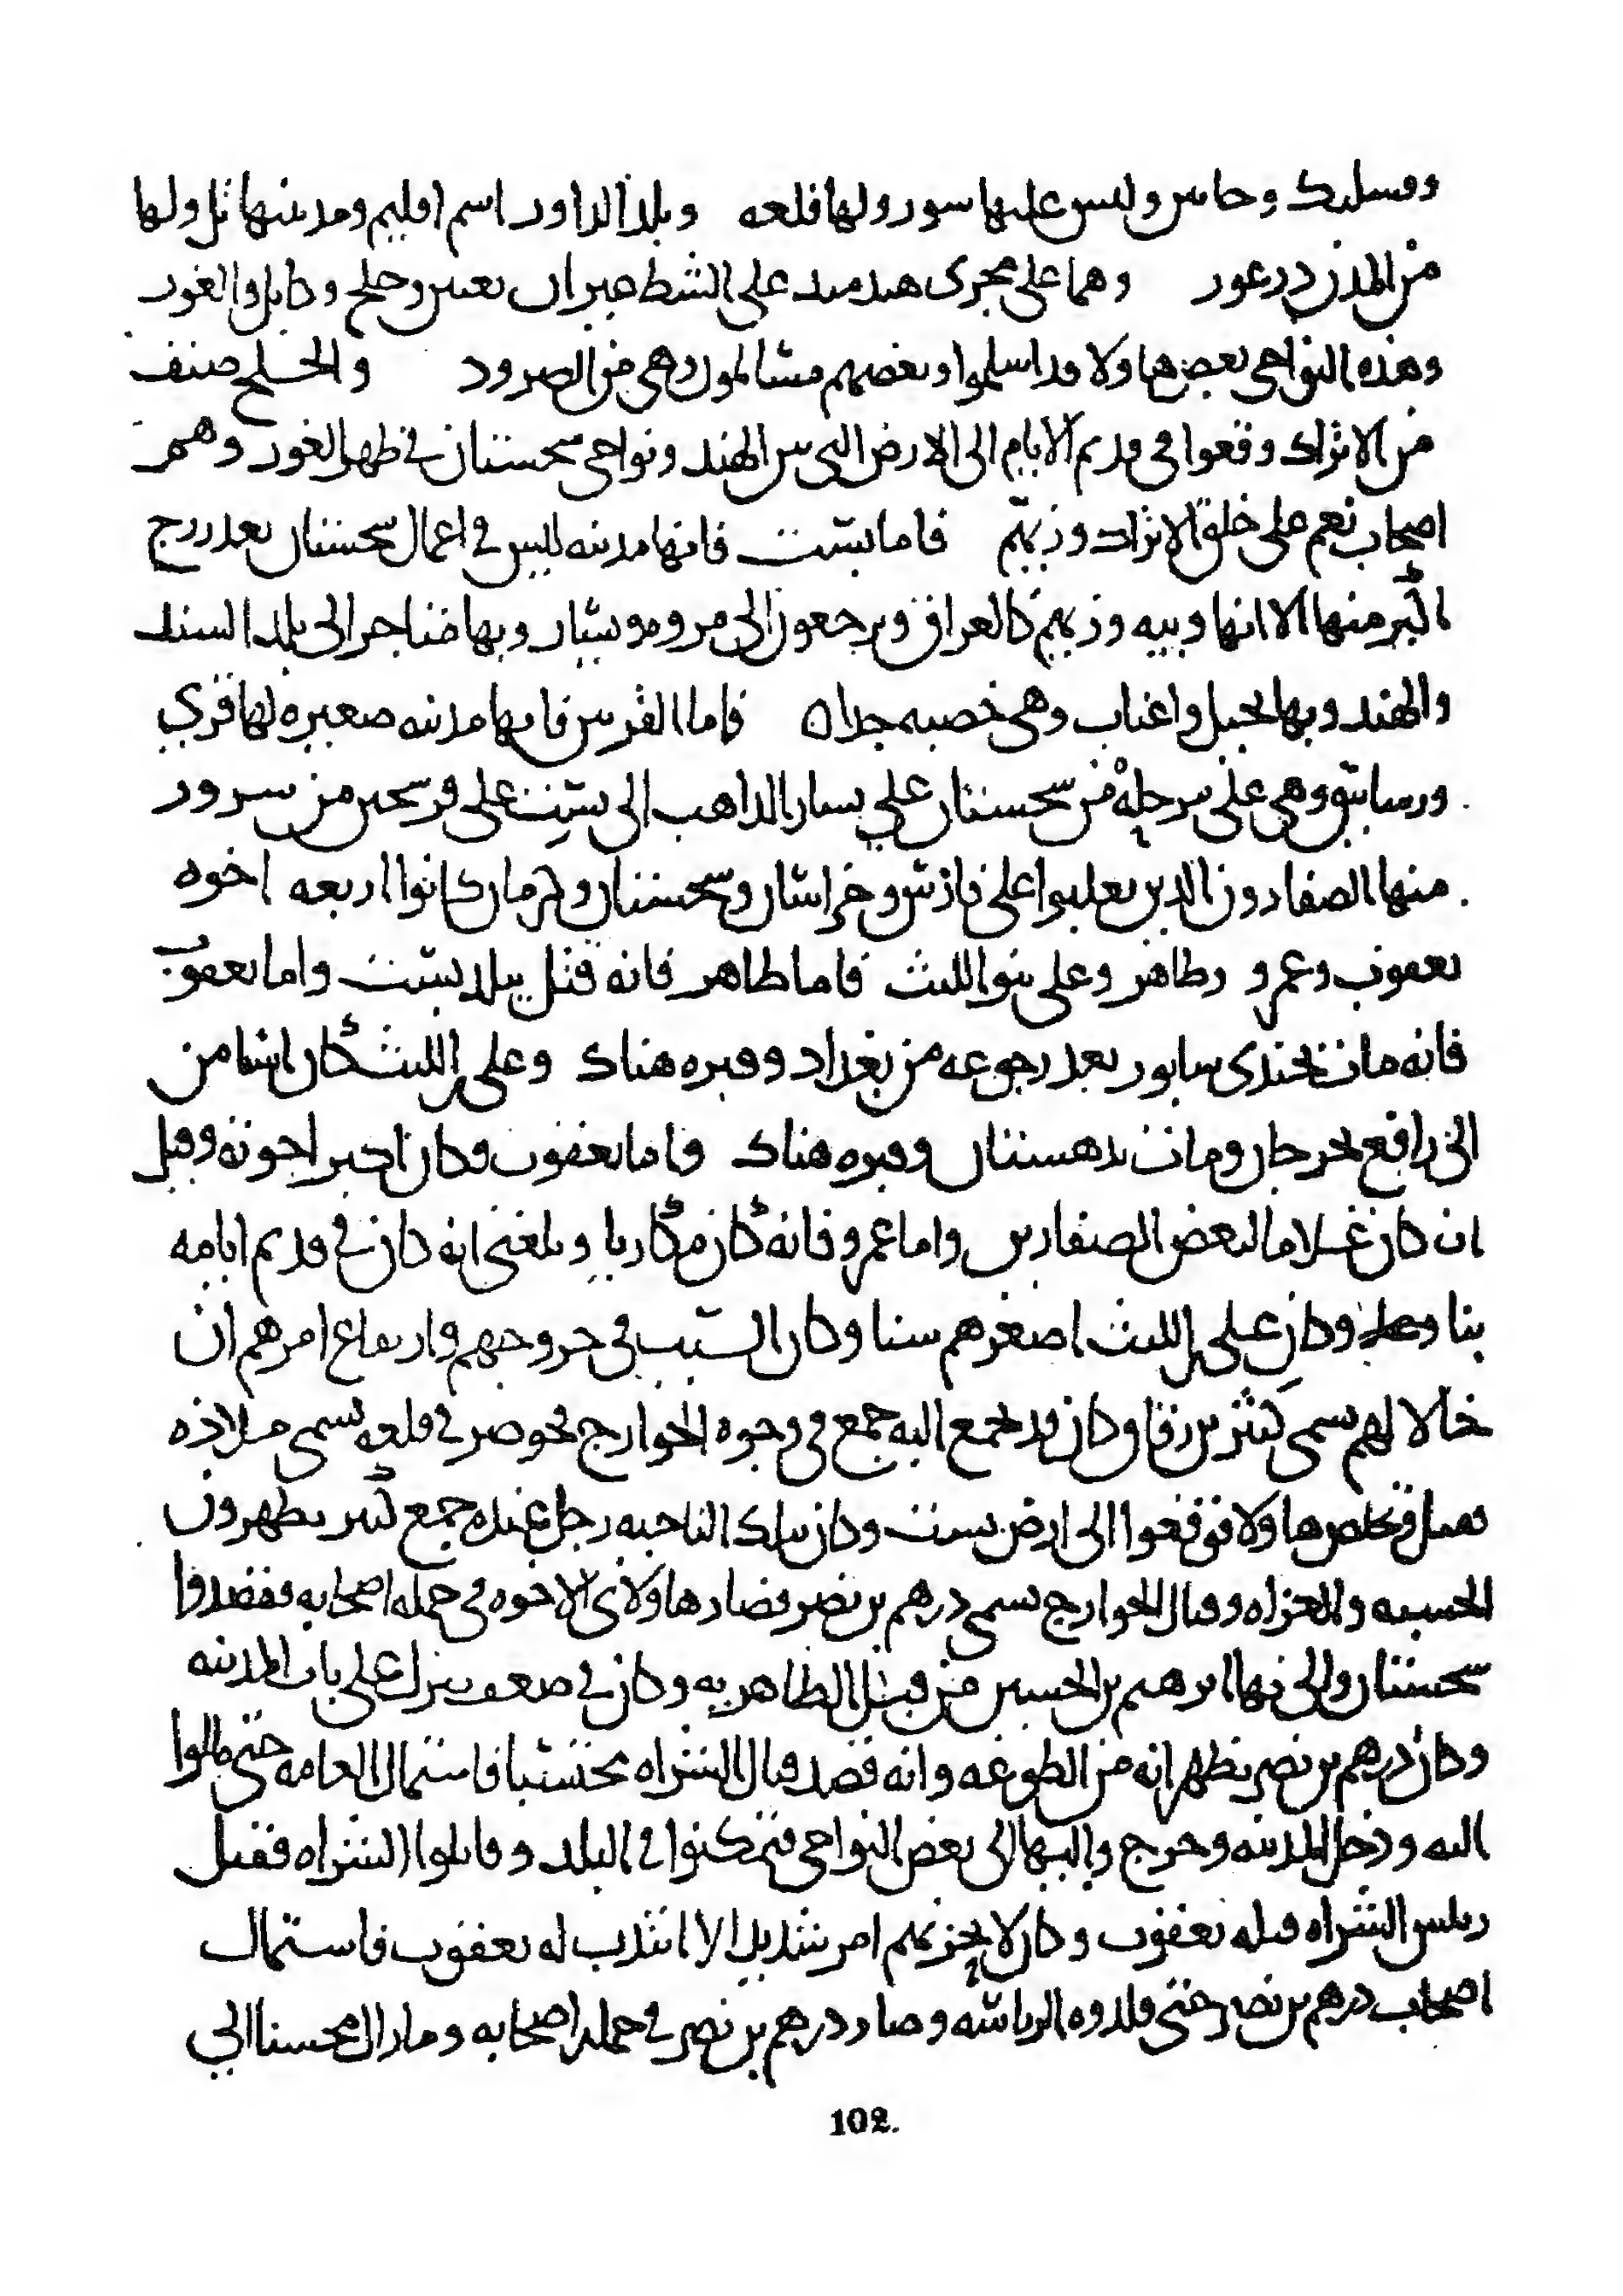 وحاس وليس عليها سور ولها قلعه وبلد الداور اسم اقليم ومدينتها تل ولها
من المدن درغور وهما على مجرى هيدميد على الشط ميران بغنين وخلج وكابل والغور
وهذه النواحى بعضها ولا قد اسلموا وبعضهم مسالمون وهى من الصرود والخلج صنف
من الاتراك وقعوا فى قديم الايام الى الارض التى بين الهند ونواحى سجستان فى ظهر الغور وهم
اصحاب نعم على خلق الاتراك وزيهم فاما بست فانها مدينه ليس فى اعمال سجستان بعد زرنج
اكبر منها الا انها وبيه وزيهم كالعراق ويرجعون الى مروه ويسار وبها متاجر الى بلد السند
والهند وبها نخيل واعناب وهى خصبه جدا ٥ فاما القرنين فانها مدينه صغيره لها قرى
ورساتيق وهى على مرحلة من سجستان على يسار الذاهب الى بست على فرسخين من سرور
منها الصفارون الذين تغلبوا على فارس وخراسان وسجستان وكرمان كانوا اربعه اخوه
يعقوب وعمرو وطاهر وعلى بنو الليث فاما طاهر فانه قتل ببلد بست واما يعقوب
فانه مات بجندى سابور بعد رجوعه من بغداد وقبره هناك وعلى بن الليث كان استامن
الى رافع بجرجان ومات بدهستان وقبره هناك واما يعقوب فكان اكبر اخوته وقيل
ان كان غلاما لبعض الصفارين واما عمرو فانه كان مكاريا وبلغنى انه كان فى قديم ايامه
بنا وكان على بن الليث اصغرهم سنا وكان السبب فى خروجهم وارتفاع امرهم ان
خالا لهم يسمى كثير بن رقاق وكان قد تجمع اليه جمع فى وجوه الخوارج فحوصر فى قلعه تسمى ملاذه
فتخلص هاولا فوقعوا الى ارض بست وكان بتلك الناحيه رجل عنده جمع كثير يظهرون
الحسبه والغزاه وقتال الخوارج يسمى درهم بن نصر فصار هاولاى الاخوه فى جمله اصحابه فقصدوا
سجستان والى بها ابرهيم بن الحسين من قبل الطاهريه وكان فى ضعف فنزل على باب المدينه
وكان درهم بن نصر يظهر انه من المطوعه وانه قصد قتال الشراه محتسبا فاستمال العامه حتى مالوا
اليه ودخل المدينه وخرج واليها الى بعض النواحى فتمكنوا فى البلد وقاتلوا الشراه فقتل
رئيس الشراه قتله يعقوب وكان لا يحزبهم امر شديد الا انتدب له يعقوب فاستمال
اصحاب درهم بن نصر حتى قلدوه الرياسه وصار درهم بن نصر فى جمله اصحابه وما زال محسنا الى
102.